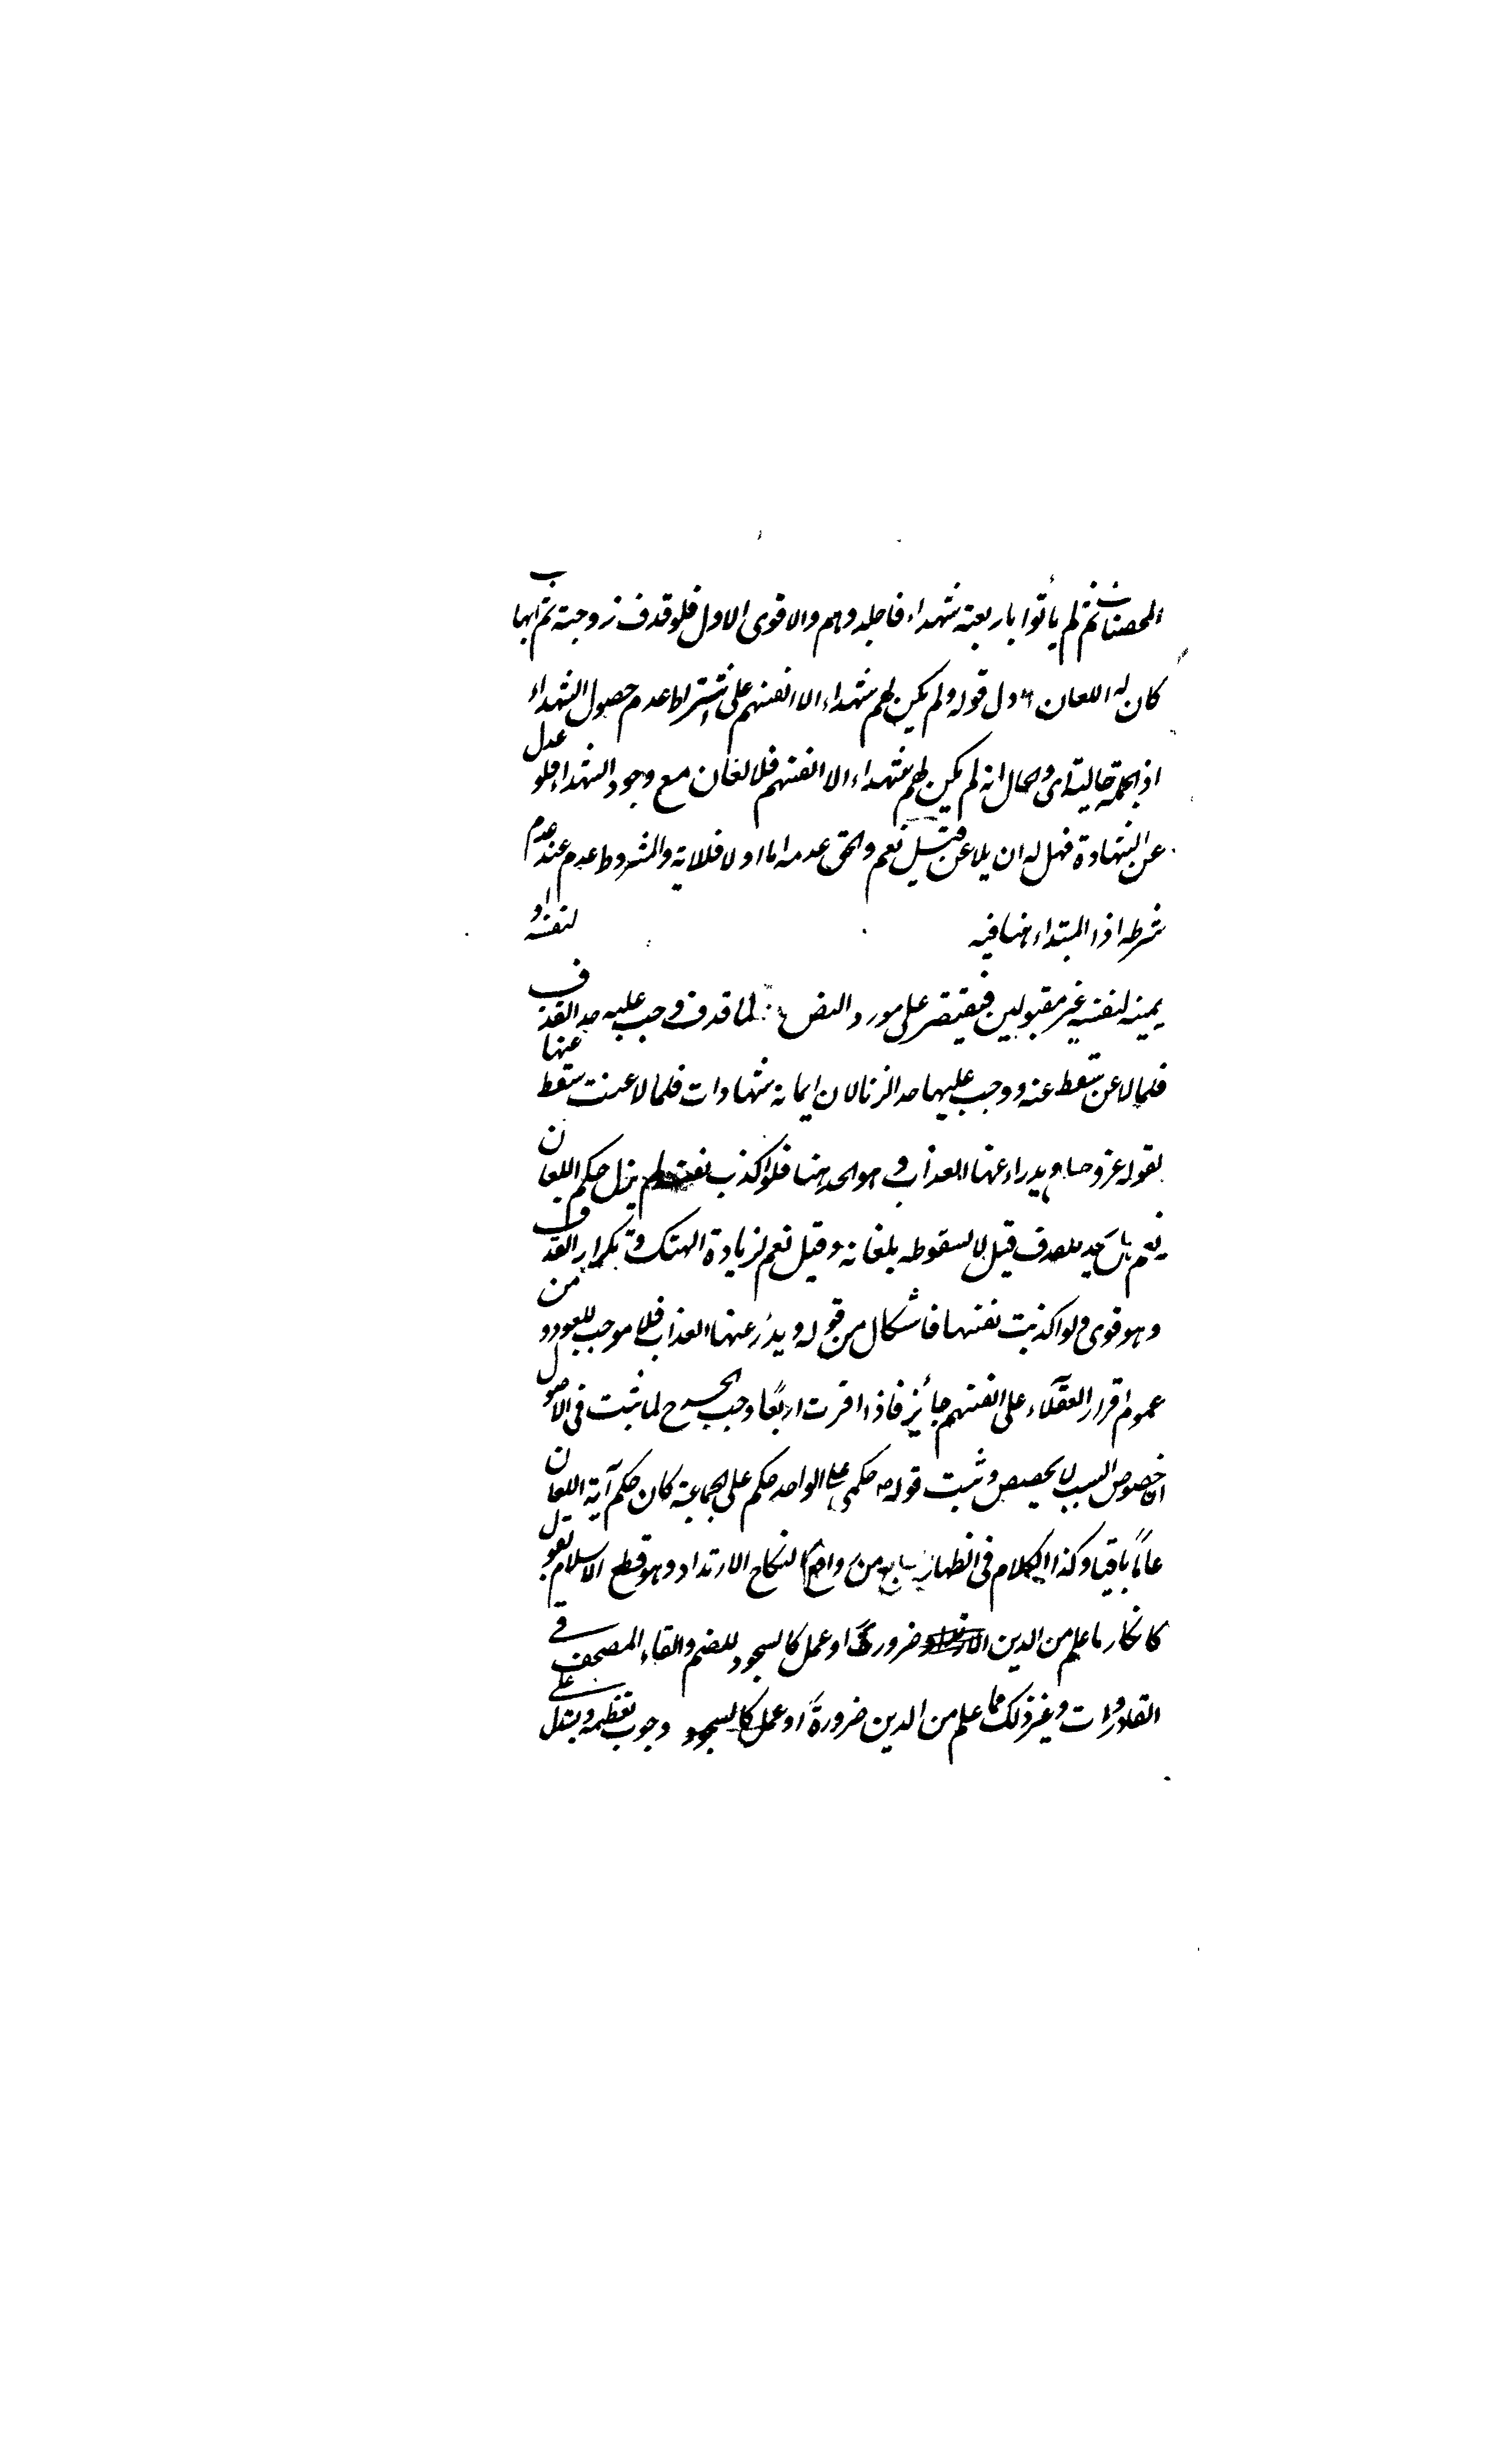 المحصنات ثم لم يأتوا باربعة شهداء فاجلدوهم والاقوى الاول فلو قذف زوجته ثم ابها
كان له اللعان دل قوله ولم يكن لهم شهداء الا انفسهم على اشتراط عدم حصول الشهداء
اذ الجملة حالية اى والحال انه لم يكن لهم شهداء الا انفسهم فلا لعان مع وجود الشهداء فلو عدل
عن الشهادة فهل له ان يلاعن قيل نعم والحق عدمه اما اولا فللاية والمشروط عدم عند عدم
شرطه اذا المبتداء هنا فيه لنفسه او
يمينه لنفسه غير مقبولين فيقتصر على مورد النص لما قذف وجب عليه حد القذف
فلما لاعن سقط عنه ووجب عليها حد الزنا لان ايمانه شهادات فلما لاعنت سقط عنها
لقوله عز وجل ويدراء عنها العذاب وهو الحد هنا فلو اكذب نفسه لم يزل حكم اللعان
نعم هل يحد للقذف قيل لا لسقوطه بلعانه وقيل نعم لزيادة الهتك وتكرار القذف
وهو قوى ولو اكذبت نفسها فاشكال من قوله ويدرء عنها العذاب فلا موجب للعود ومن
عموم اقرار العقلاء على انفسهم جائز فاذا اقرت اربعا وجب الحد ح لما ثبت فى الاصول
ان خصوص السبب لا يخصص وثبت قوله ص حكمى على الواحد حكم على الجماعة كان حكم آية اللعان
عاما باقيا وكذا الكلام فى الظهار من روافع النكاح الارتداد وهو قطع الاسلام بقول
كانكار ما علم من الدين ضرورة او عمل كالسجود للصنم والقاء المصحف فى
القاذورات وغير ذلك مما علم من الدين ضرورة او عمل كالسجود وجوب تعظيمه ويستدل على